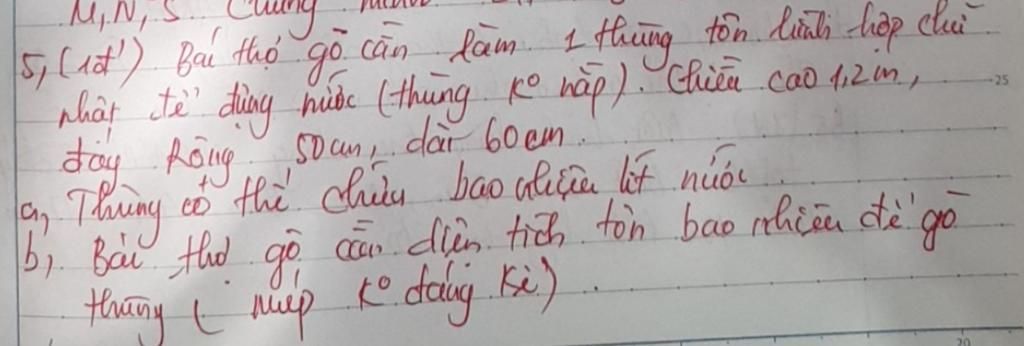 M, N, S. Chứng minh
5, (1đ) Bái thợ gò cần làm 1 thùng tôn hình hộp chữ
nhật để đựng nước (thùng ko nắp). Chiều cao 1,2m,
đáy Rông 50cm, dài 60cm.
a, Thùng có thể chứa bao nhiêu lít nước
b, Bác thợ gò cần diện tích tôn bao nhiêu để gò
thùng ( mép ko đáng kể)